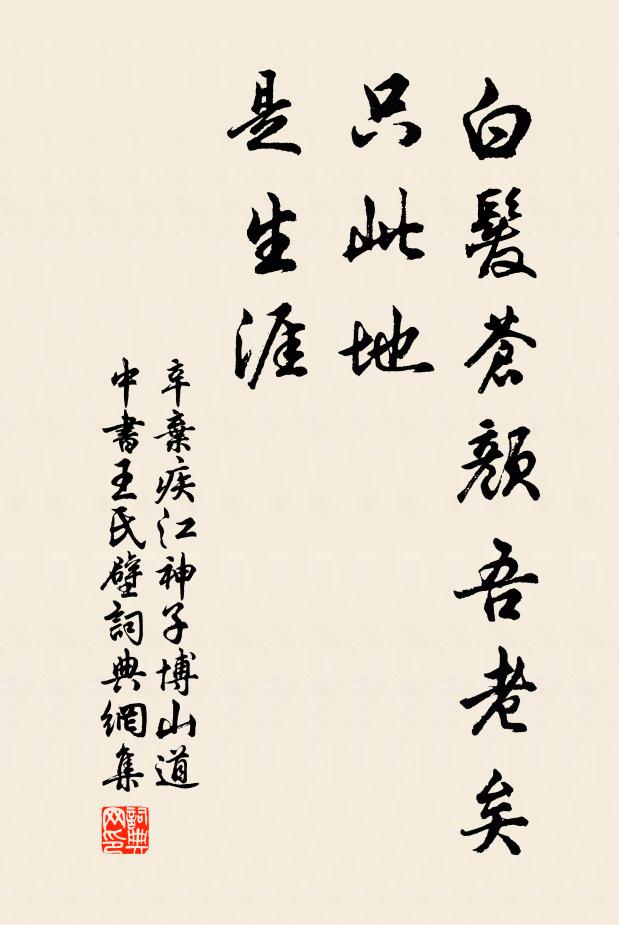 白髮蒼顏吾老矣
只此地
是生涯
辛棄疾江神子博山道
中書王氏壁詞典網集
詞典
网印